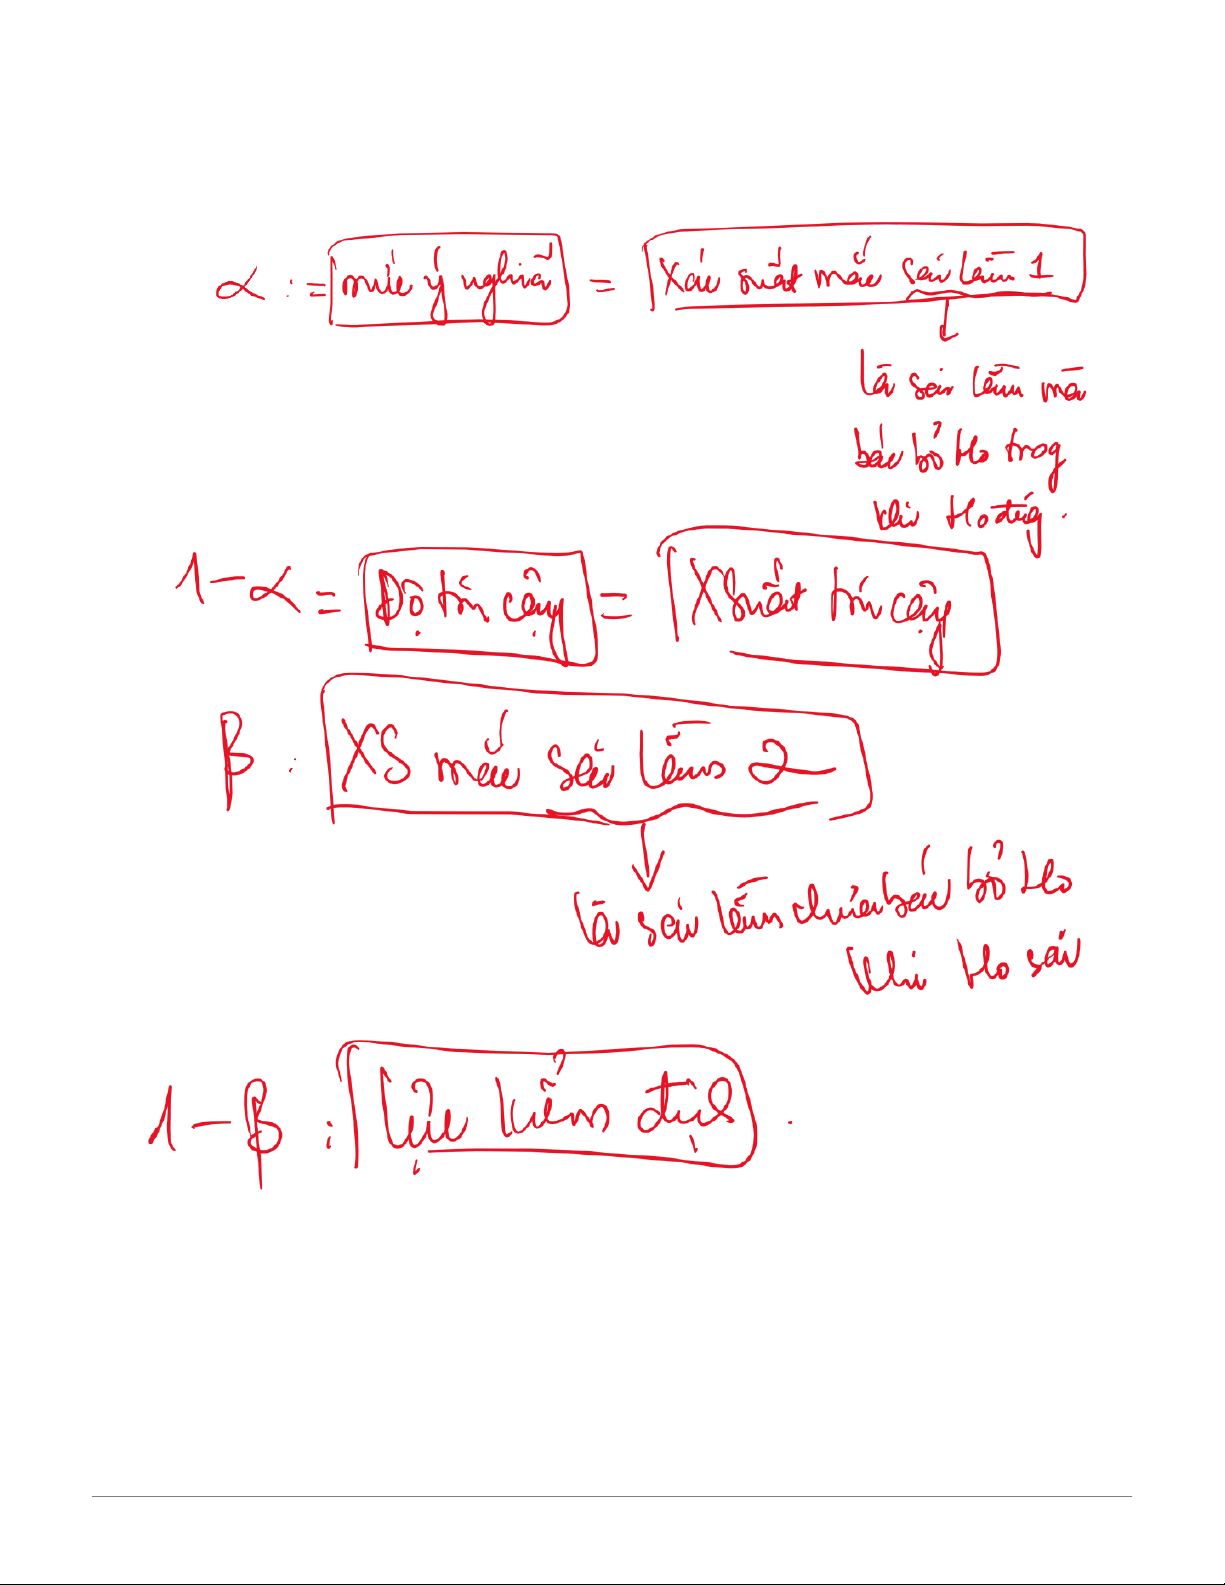 α := mức ý nghĩa = Xác suất mắc sai lầm 1
là sai lầm mà
bác bỏ Ho trog
khi Ho đúg.
1-α = Độ tin cậy = Xsuất tin cậy
β : XS mắc sai lầm 2
là sai lầm chưa bác bỏ Ho
khi Ho sai
1-β : lực kiểm định.